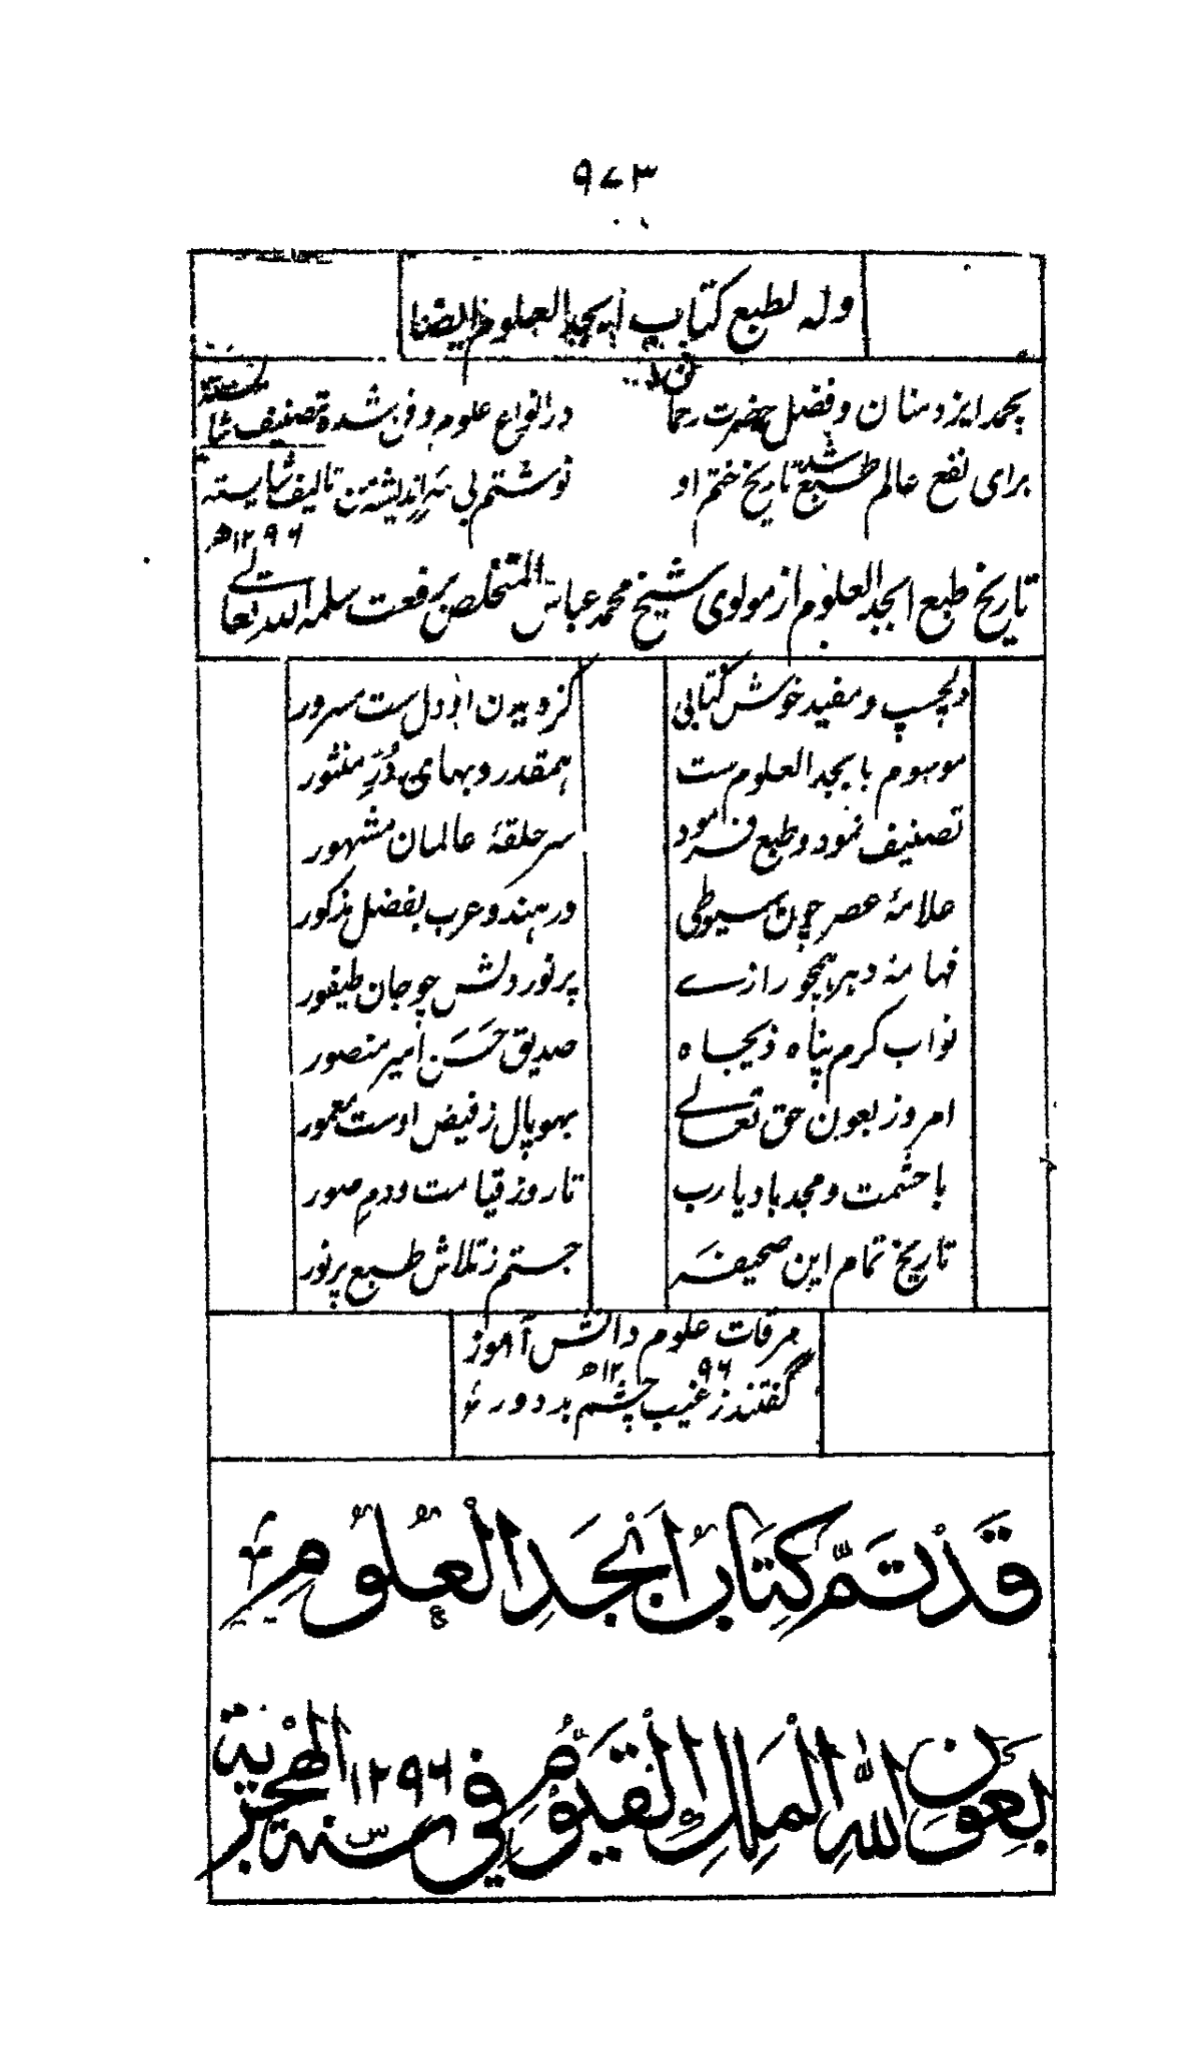 ٩٧٣
وله لطبع كتاب ابجد العلوم ايضا
بحمد ايزد منان وفضل حضرت رحمان در انواع علوم وفن شده تصنيف شايسته
براى نفع عالم طبع شد تاريخ ختم او نوشتم بى سر انديشه من تاليف شايسته
١٢٩٦ھ
تاريخ طبع ابجد العلوم از مولوى شيخ محمد عباس المتخلص برفعت سلمه الله تعالے
دلچسپ ومفيد خوش كتابى كز ديدن او دل ست مسرور
موسوم بابجد العلوم ست همقدر وبهاى دُرِّ منثور
تصنيف نمود وطبع فرمود سر حلقهٔ عالمان مشهور
علامهٔ عصر چون سيوطى در هند وعرب بفضل مذكور
فهامهٔ دهر همچو رازے پر نور دلش چو جان طيفور
نواب كرم پناه ذيجاه صديق حَسَن امير منصور
امروز بعون حق تعالے بهوپال ز فيض اوست معمور
با حشمت ومجد باد يا رب تا روز قيامت ودمِ صور
تاريخ تمام اين صحيفه جستم ز تلاش طبع پر نور
مرقات علوم دانش آموز
١٢٩٦ھ
گفتند ز غيب چشم بد دور
قَدْ تَمَّ كِتَابُ اَبْجَدِ الْعُلُوْمِ
بِعَوْنِ اللّٰهِ الْمَلِكِ الْقَيُّوْمِ فِي سنة ١٢٩٦ الهِجْرِيَّة